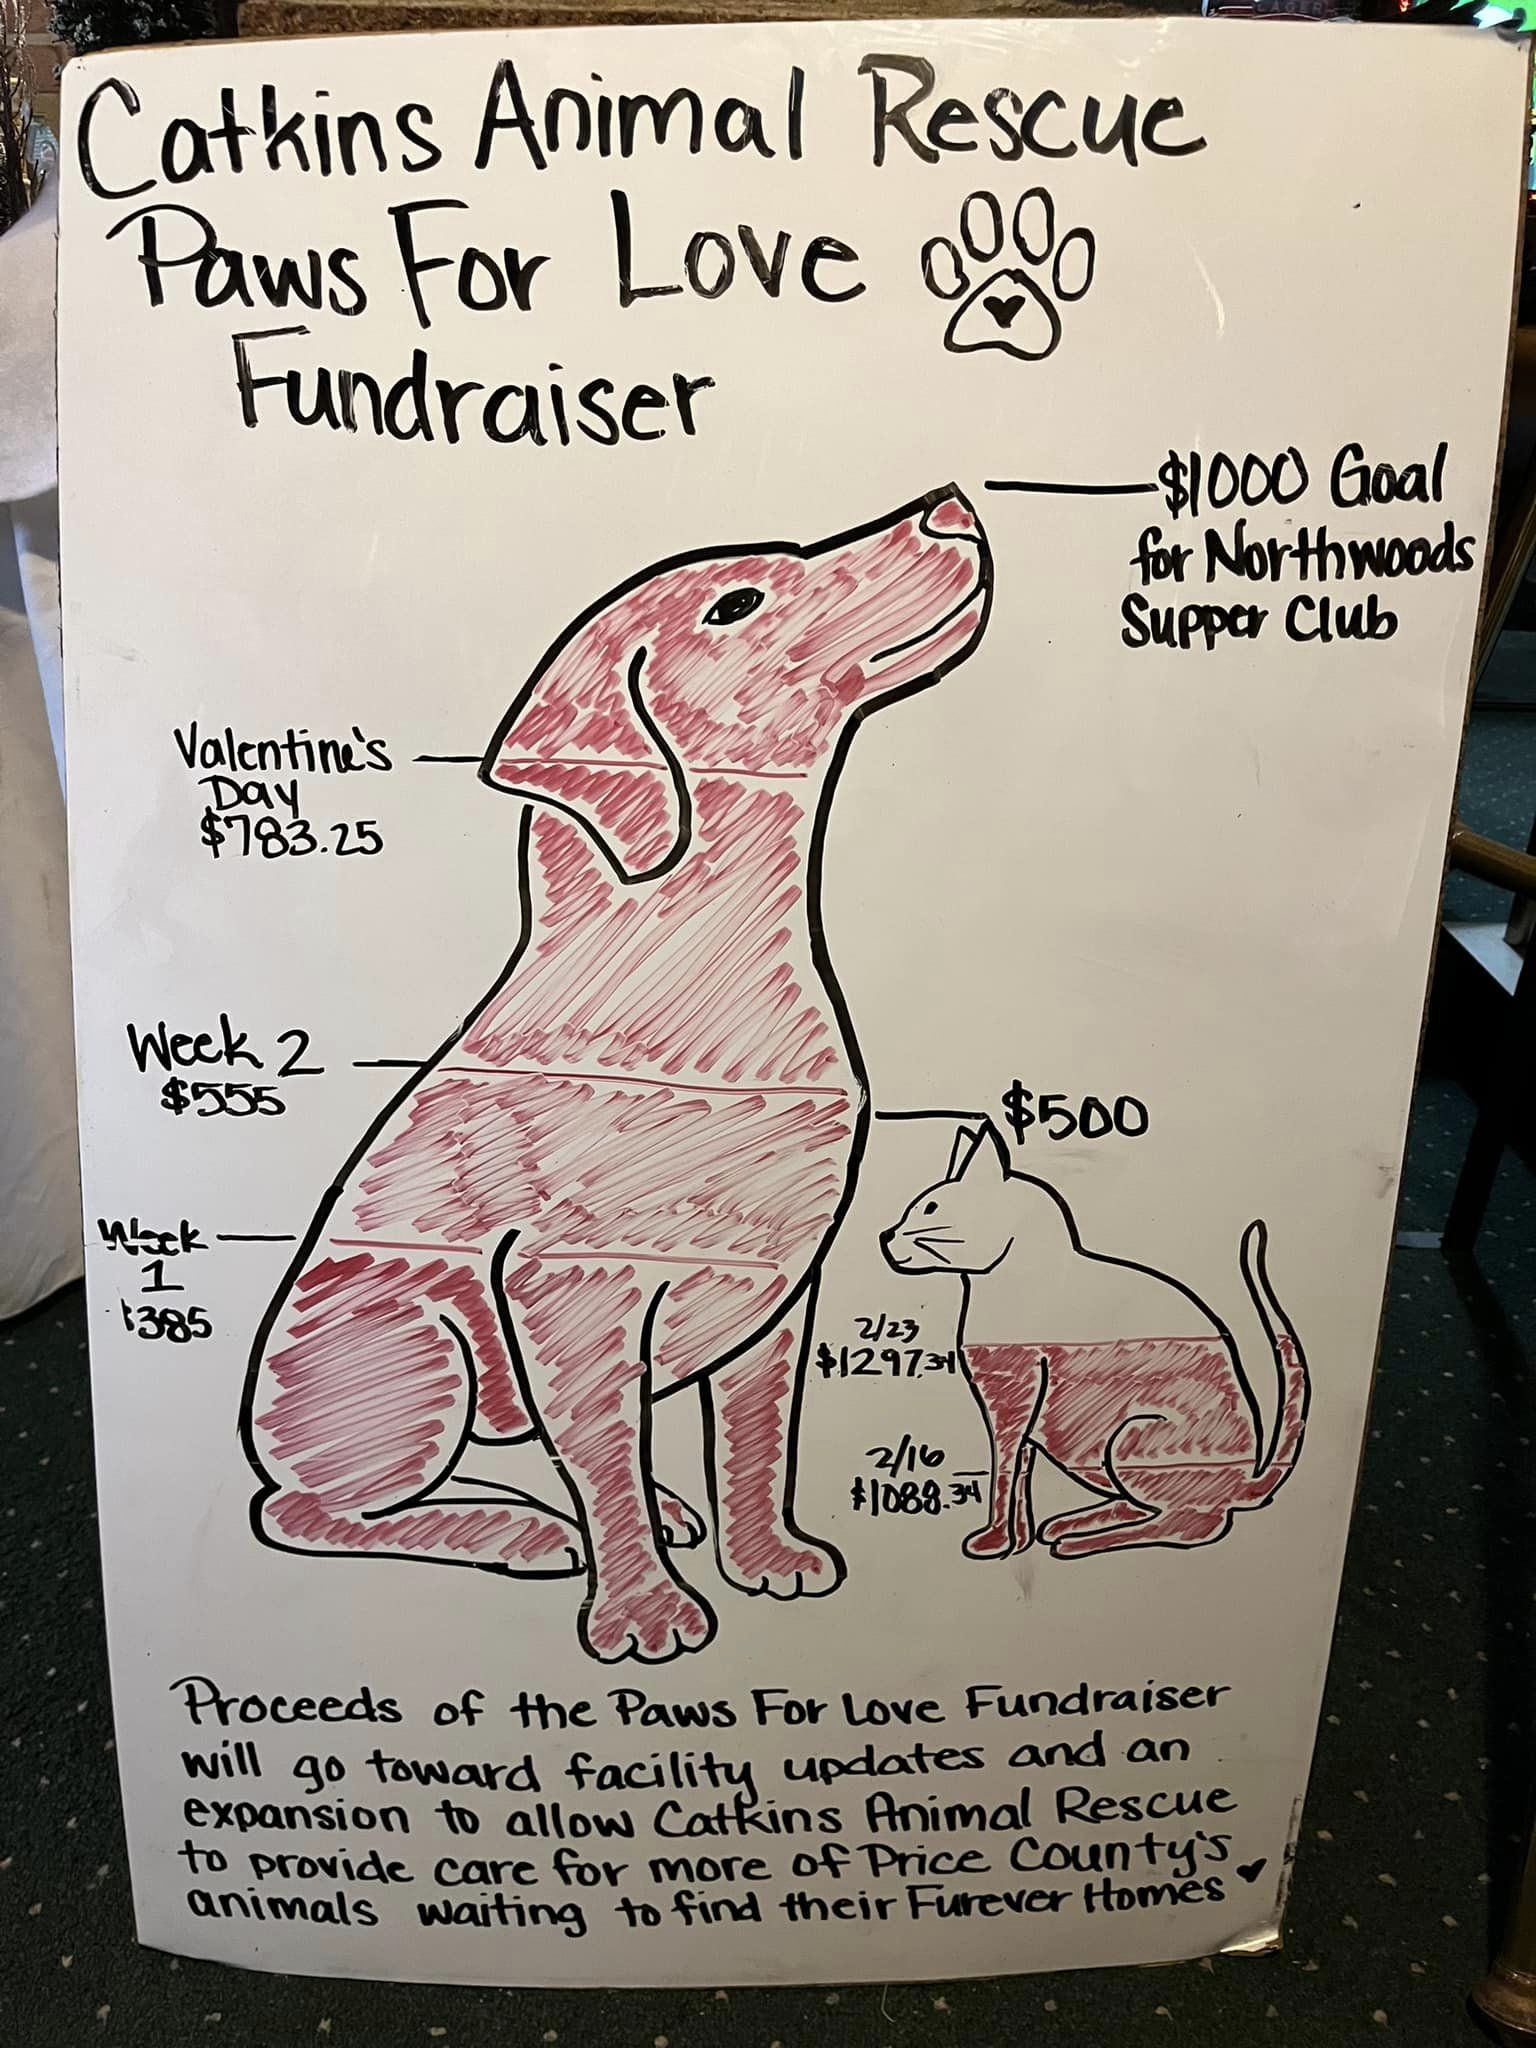 Catkins Animal Rescue
Paws For Love
Fundraiser
$1000 Goal
for Northwoods
Supper Club
Valentine's
Day
$783.25
Week 2
$555
$500
Week
1
$385
2/23
$1297.34
2/16
$1088.34
Proceeds of the Paws For Love Fundraiser
will go toward facility updates and an
expansion to allow Catkins Animal Rescue
to provide care for more of Price County's
animals waiting to find their Furever Homes